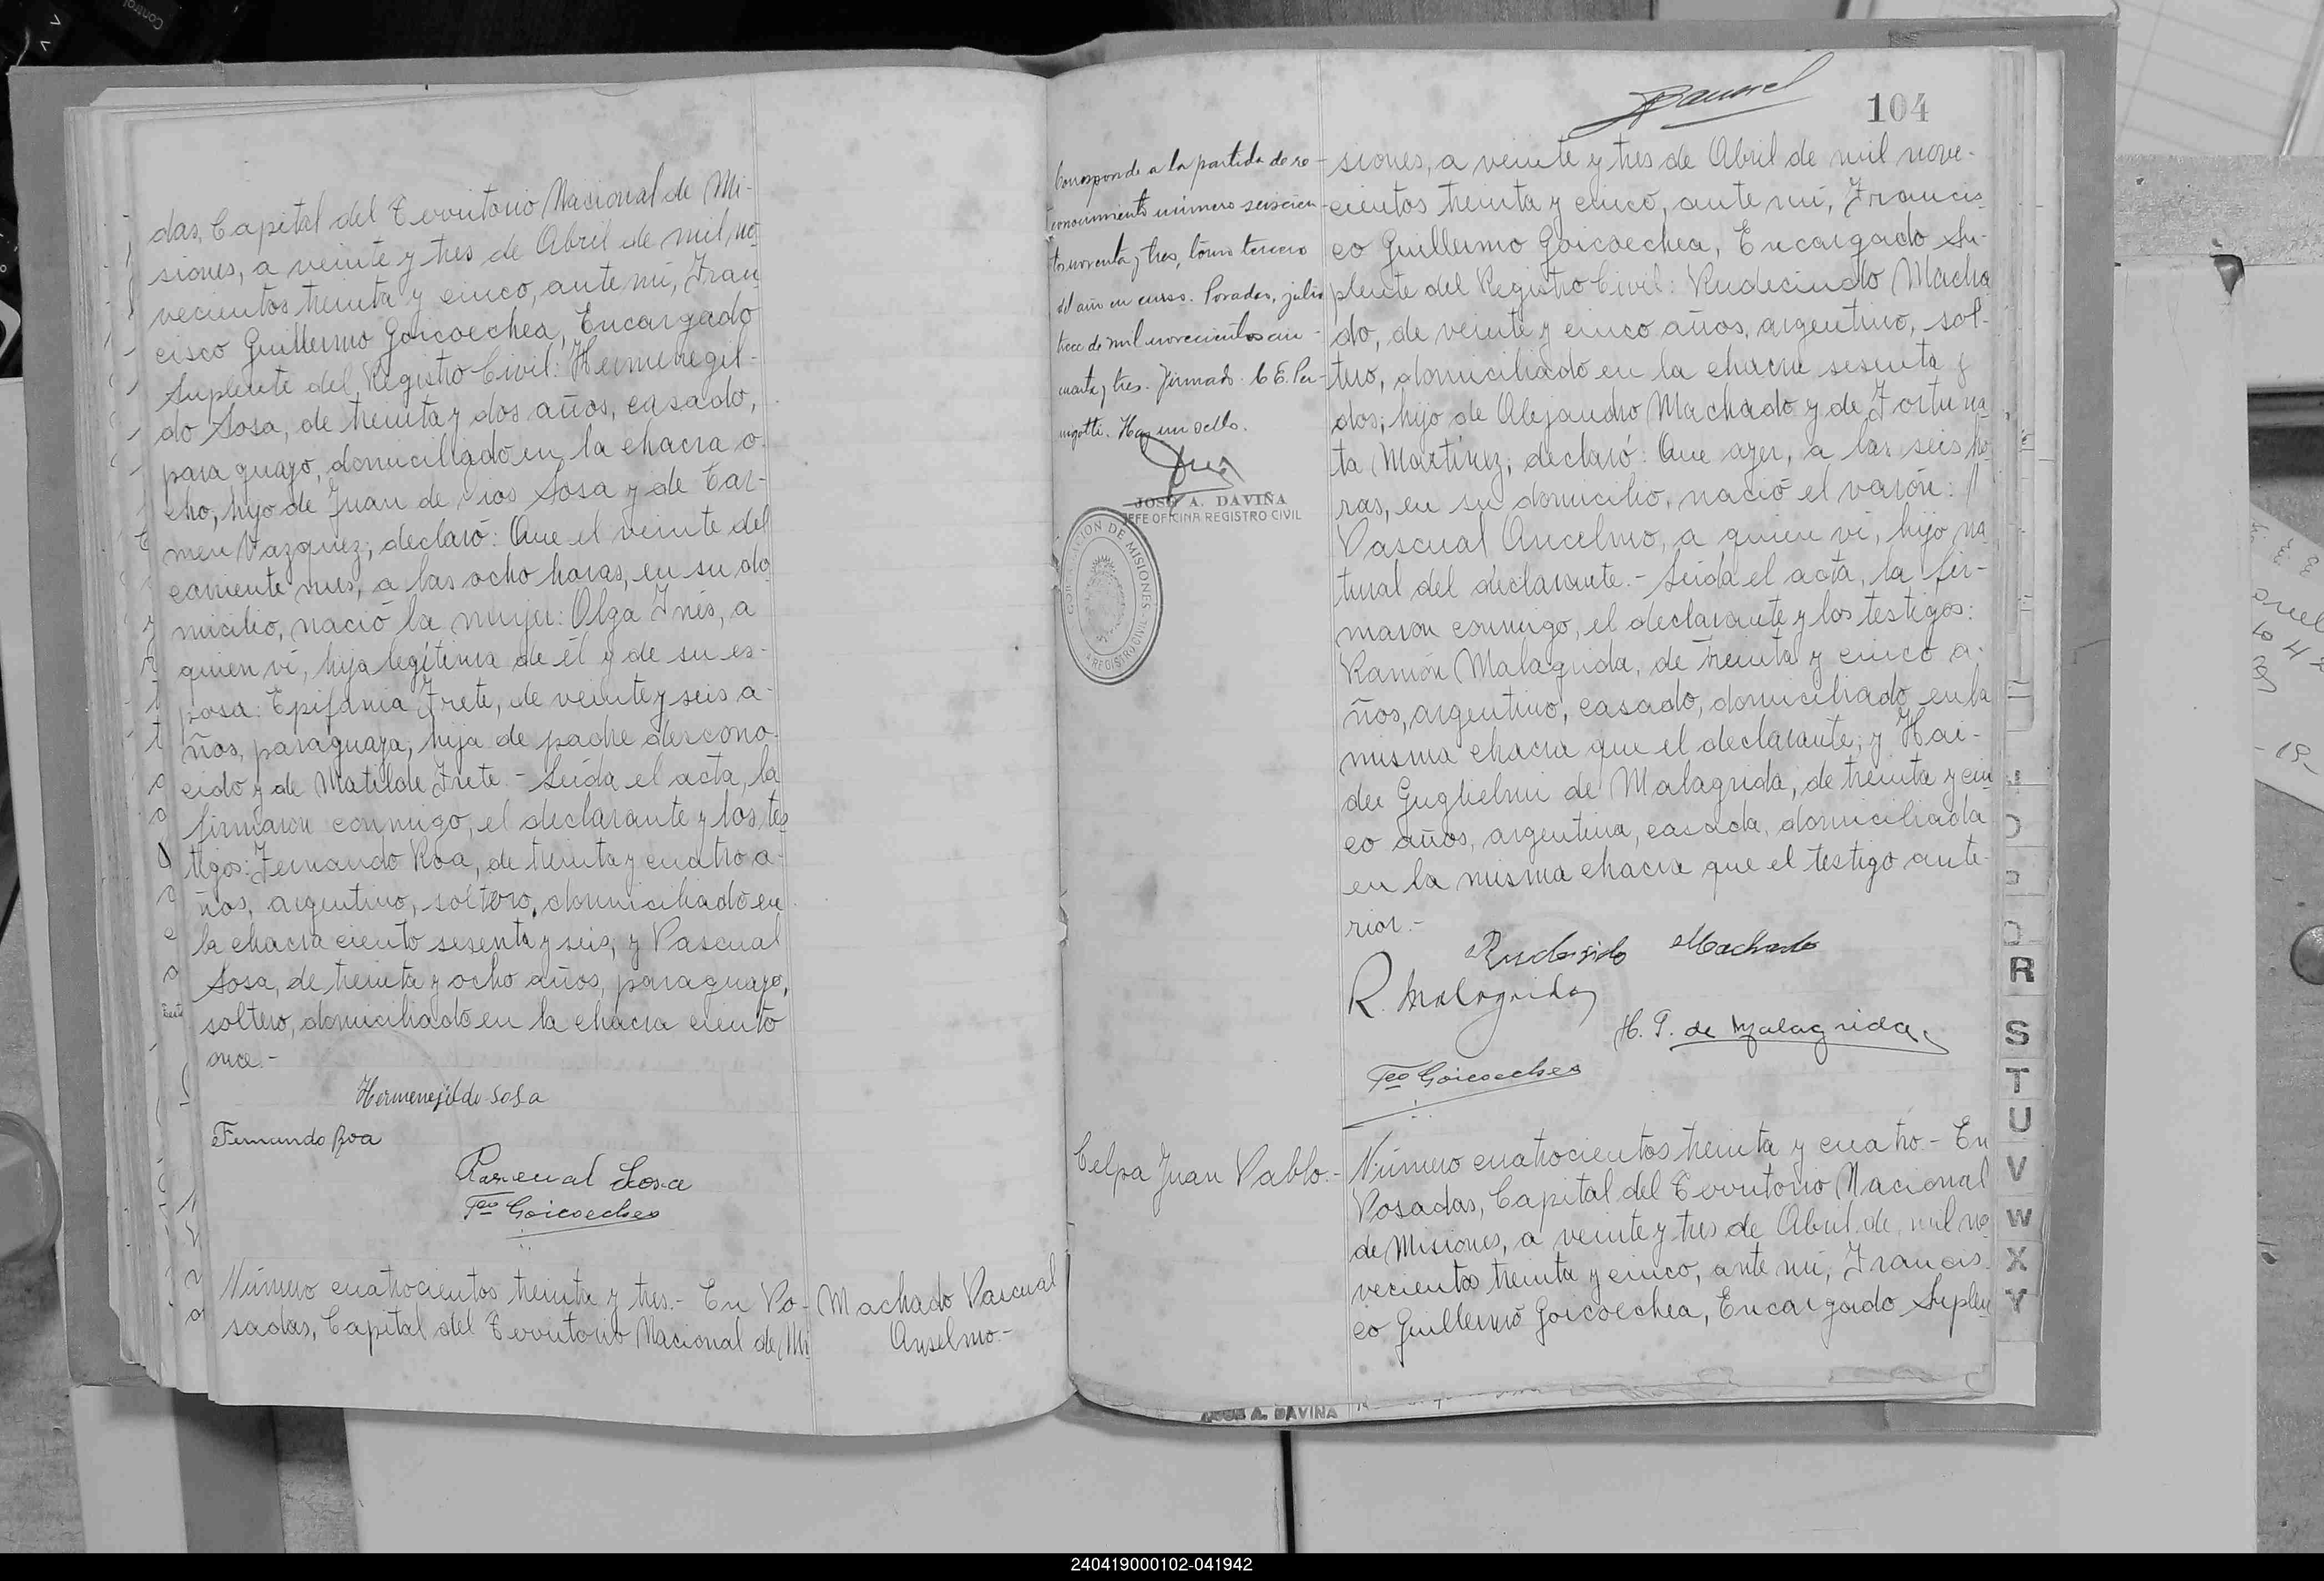 das, Capital del Territorio Nacional de Mi-
siones, a veinte y tres de Abril de mil no-
vecientos treinta y cinco, ante mi, Fran-
cisco Guillermo Goicoechea, Encargado
Suplente del Registro Civil: Hermenegil-
do Sosa, de treinta y dos años, casado,
paraguayo, domiciliado en la chacra o-
cho, hijo de Juan de Dios Sosa y de Car-
men Vazquez; declaró: Que el veinte del
corriente mes, a las ocho horas, en su do-
micilio, nació la mujer: Olga Inés, a
quien ví, hija legítima de él y de su es-
posa: Epifania Frete, de veinte y seis a-
ños, paraguaya, hija de padre descono-
cido y de Matilde Frete.- Leida el acta, la
firmaron conmigo, el declarante y los tes-
tigos: Fernando Roa, de treinta y cuatro a-
ños, argentino, soltero, domiciliado en
la chacra ciento sesenta y seis, y Pascual
Sosa, de treinta y ocho años, paraguayo,
soltero, domiciliado en la chacra ciento
once.-
Hermenejildo Sosa
Fernando Roa
Pascual Sosa
Fco Goicoechea
Número cuatrocientos treinta y tres.- En Po-
sadas, Capital del Territorio Nacional de Mi
Machado Pascual
Anselmo.-
104
Corresponde a la partida de re-
conocimiento número seiscien-
tos noventa y tres, tomo tercero
del año en curso. Posadas, julio
trece de mil novecientos cua-
renta y tres. Firmado: C. E. Per-
Hay un sello.
JOSÉ A. DAVIÑA
JEFE OFICINA REGISTRO CIVIL
GOBERNACION DE MISIONES
REGISTRO CIVIL
siones, a veinte y tres de Abril de mil nove-
cientos treinta y cinco, ante mi, Francis-
co Guillermo Goicoechea, Encargado Su-
plente del Registro Civil: Rudecindo Macha
do, de veinte y cinco años, argentino, sol-
tero, domiciliado en la chacra sesenta y
dos; hijo de Alejandro Machado y de Fortuna
ta Martínez; declaró: Que ayer, a las seis ho
ras, en su domicilio, nació el varón:
Pascual Ancelmo, a quien vi, hijo na
tural del declarante.- Leida el acta, la fir-
maron conmigo, el declarante y los testigos:
Ramón Malagrida, de treinta y cinco a-
ños, argentino, casado, domiciliado en la
misma chacra que el declarante; y Hai-
dee Guglielmi de Malagrida, de treinta y cin
co años, argentina, casada, domiciliada
en la misma chacra que el testigo ante-
rior.-
Rudesindo Machado
R. Malagrida
H. G. de Malagrida
Fco Goicoechea
Celpa Juan Pablo.-
Número cuatrocientos treinta y cuatro.- En
Posadas, Capital del Territorio Nacional
de Misiones, a veinte y tres de Abril de mil no
vecientos treinta y cinco, ante mi, Francis-
co Guillermo Goicoechea, Encargado Suplen
JOSE A. DAVIÑA
R
S
T
U
V
W
X
Y
240419000102-041942